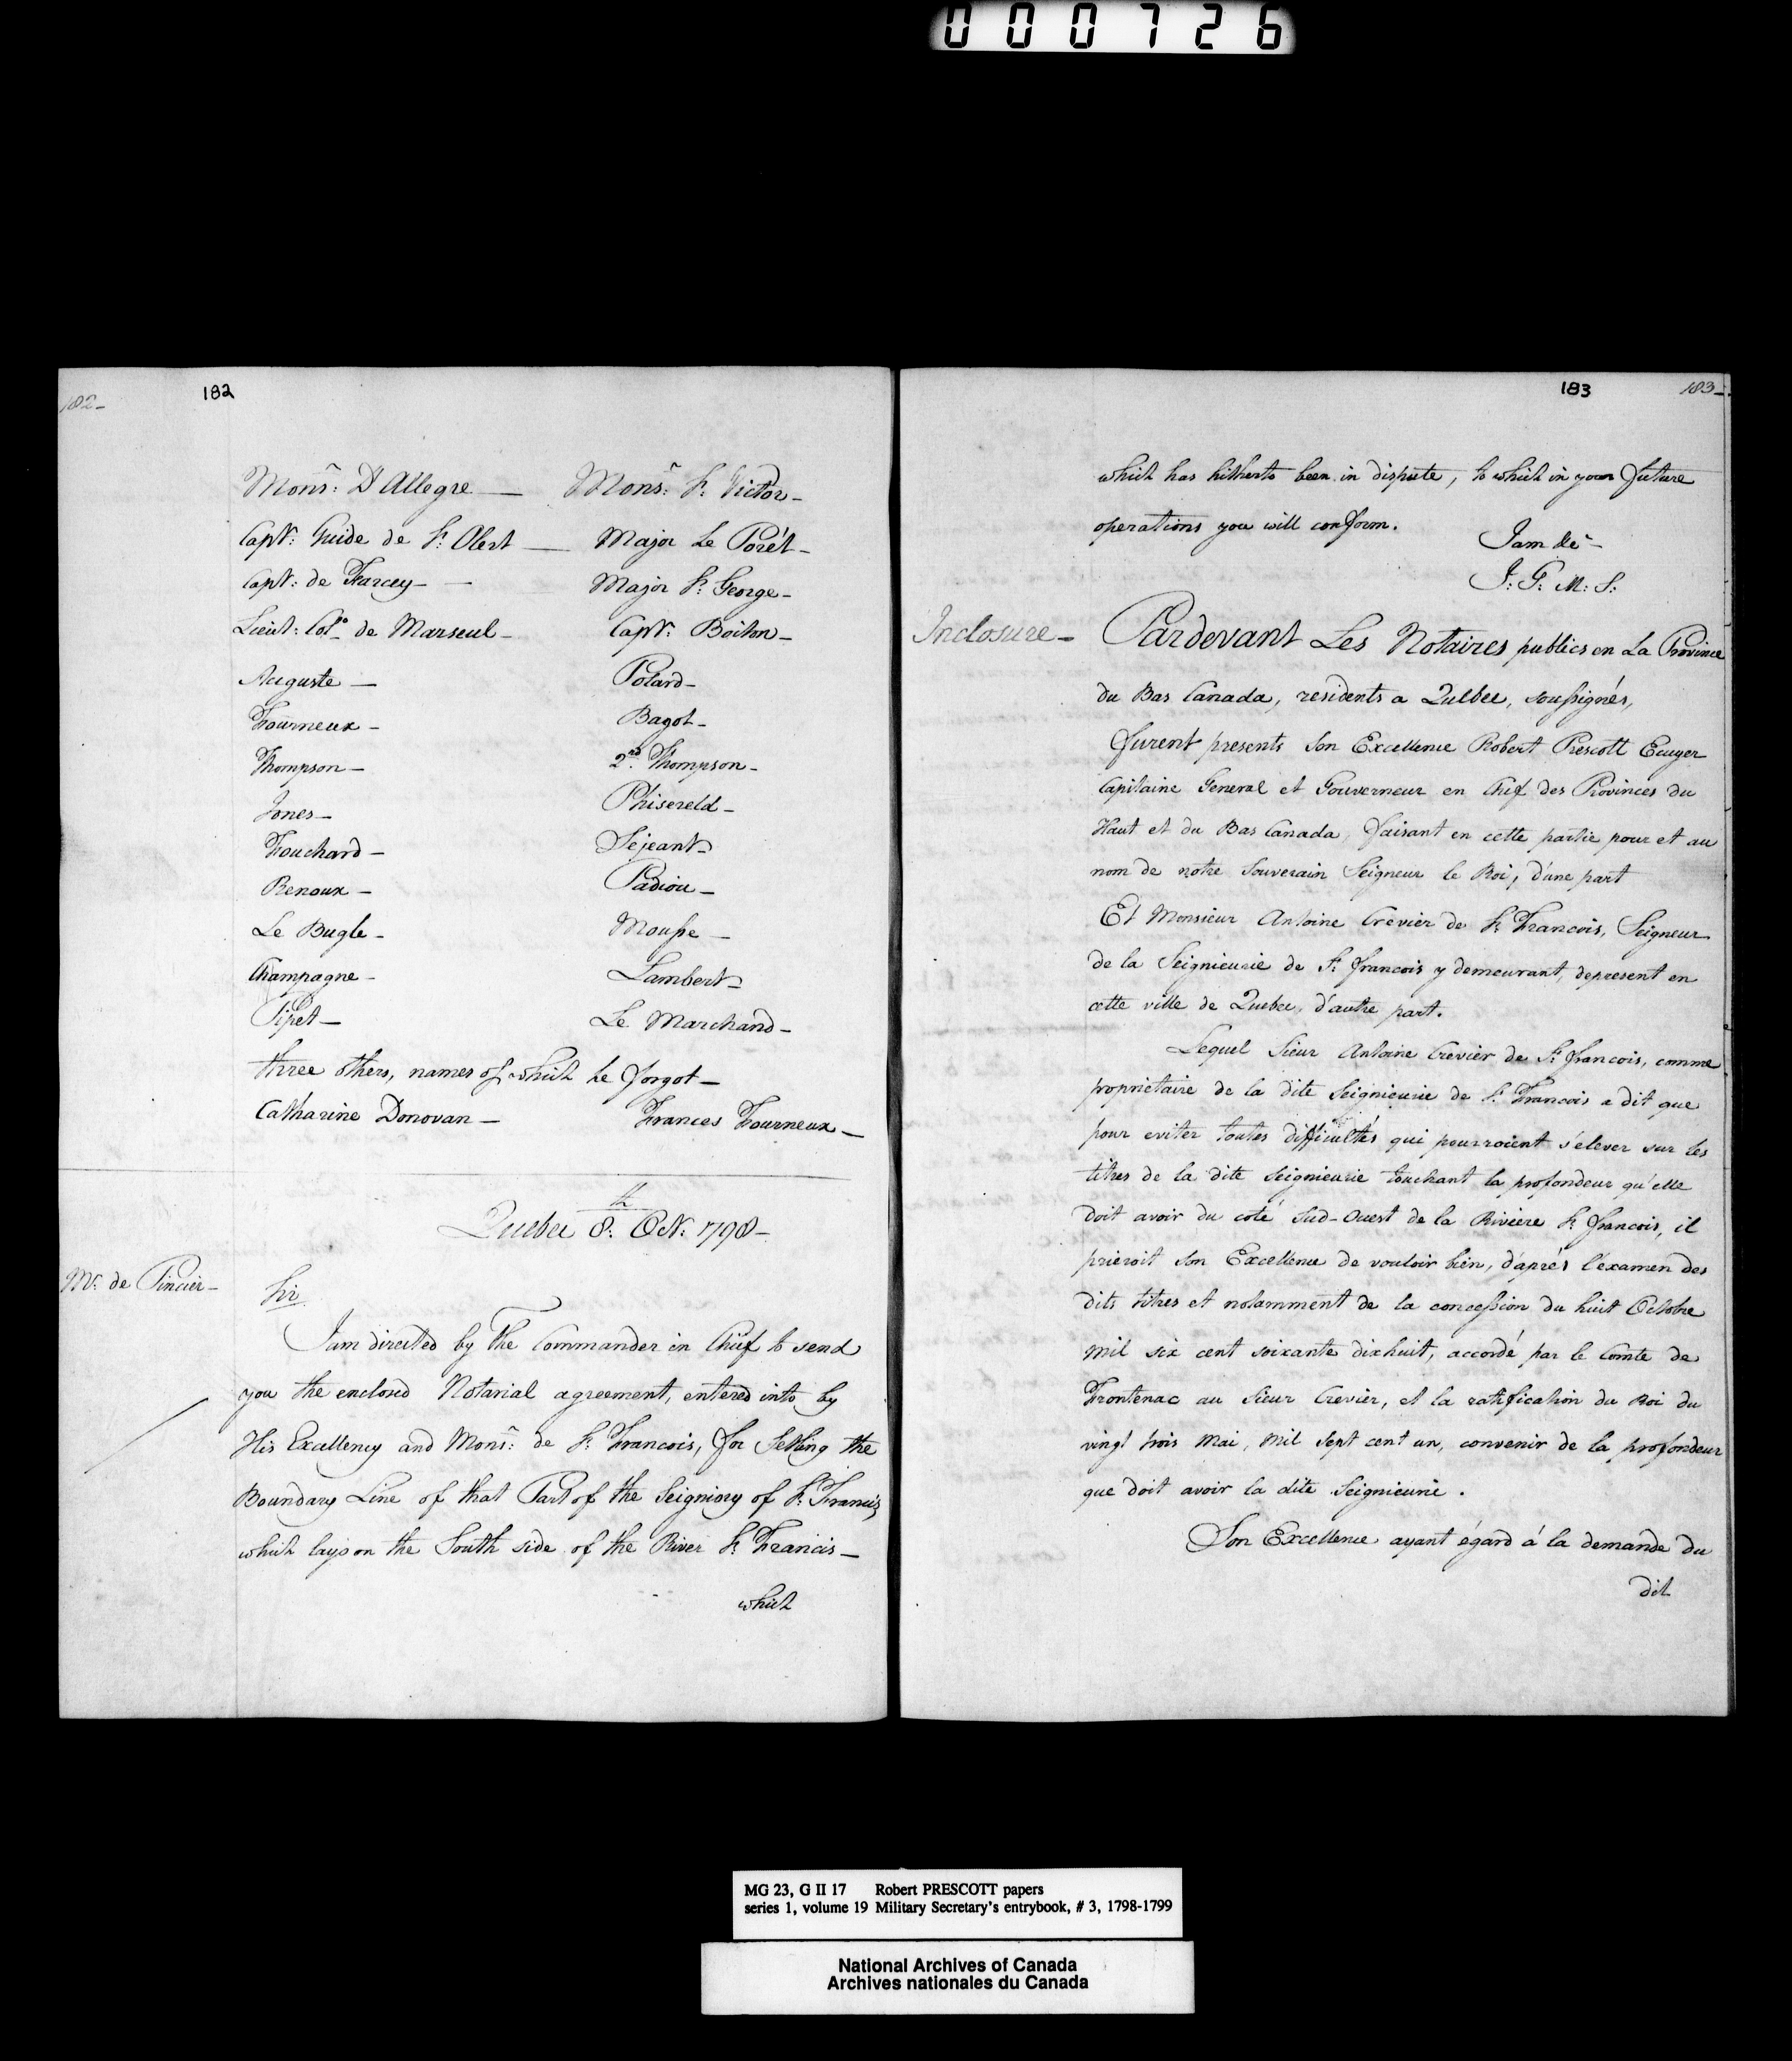 000726
182- 182
Monsr: D'Allegre — Monsr: St: Victor-
Capt: Guide de St: Olert — Major Le Porét-
Capt: de Farcey- - Major St: George-
Lieut: Colo de Marseul- Capt: Boiton-
Auguste — Polard-
Fourneux- Bagot-
Thompson- 2nd: Thompson-
Jones- Phisereld-
Fouchard- Sejeant-
Renoux- Padiou-
Le Bugle- Mousse-
Champagne- Lambert-
Pipet- Le Marchand-
three others, names of which he forgot-
Catharine Donovan- Frances Fourneux-
Quebec 8th: Oct: 1798-
Mr: de Pincier-
Sir
I am directed by the Commander in Chief to send
you the enclosed Notarial agreement, entered into by
His Excellency and Monsr: de St: Francois, for Settling the
Boundary Line of that Part of the Seigniory of St: Francis
which lays on the South side of the River St: Francis-
which
183 183-
which has hitherto been in dispute, to which in your future
operations you will conform.
I am &c-
J: G: M: S:
Inclosure- Pardevant Les Notaires publics en La Province
du Bas Canada, residents a Quebec, soussignés,
furent presents Son Excellence Robert Prescott Ecuyer
Capitaine General et Gouverneur en Chef des Provinces du
Haut et du Bas Canada, faisant en cette partie pour et au
nom de notre Souverain Seigneur le Roi, d'une part
Et Monsieur Antoine Crevier de St: Francois, Seigneur
de la Seignieurie de St: francois y demeurant, depresent en
cette ville de Quebec, d'autre part.
Lequel Sieur Antoine Crevier de St: francois, comme
proprietaire de la dite Seignieurie de St: Francois a dit que
pour eviter toutes difficultés qui pourroient s'elever sur les
titres de la dite Seignieurie touchant la profondeur qu'elle
doit avoir du coté Sud-Ouest de la Riviere St: francois, il
prieroit Son Excellence de vouloir bien, d'aprés l'examen des
dits titres et notamment de la concession du huit Octobre
mil six cent soixante dixhuit, accordé par le Comte de
Frontenac au Sieur Crevier, et la ratification du Roi du
vingt trois Mai, Mil Sept cent un, convenir de la profondeur
que doit avoir la dite Seignieurie.
Son Excellence ayant égard á la demande du
dit
MG 23, G II 17 Robert PRESCOTT papers
series 1, volume 19 Military Secretary's entrybook, # 3, 1798-1799
National Archives of Canada
Archives nationales du Canada